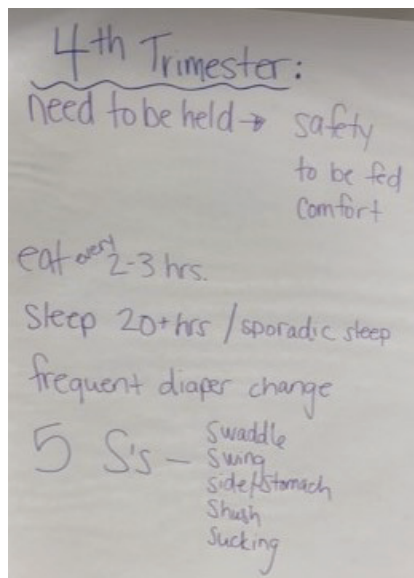 4th Trimester:
need to be held → safety
to be fed
comfort
eat every 2-3 hrs.
sleep 20+hrs / sporadic sleep
frequent diaper change
5 S's – Swaddle
Swing
side/stomach
Shush
Sucking